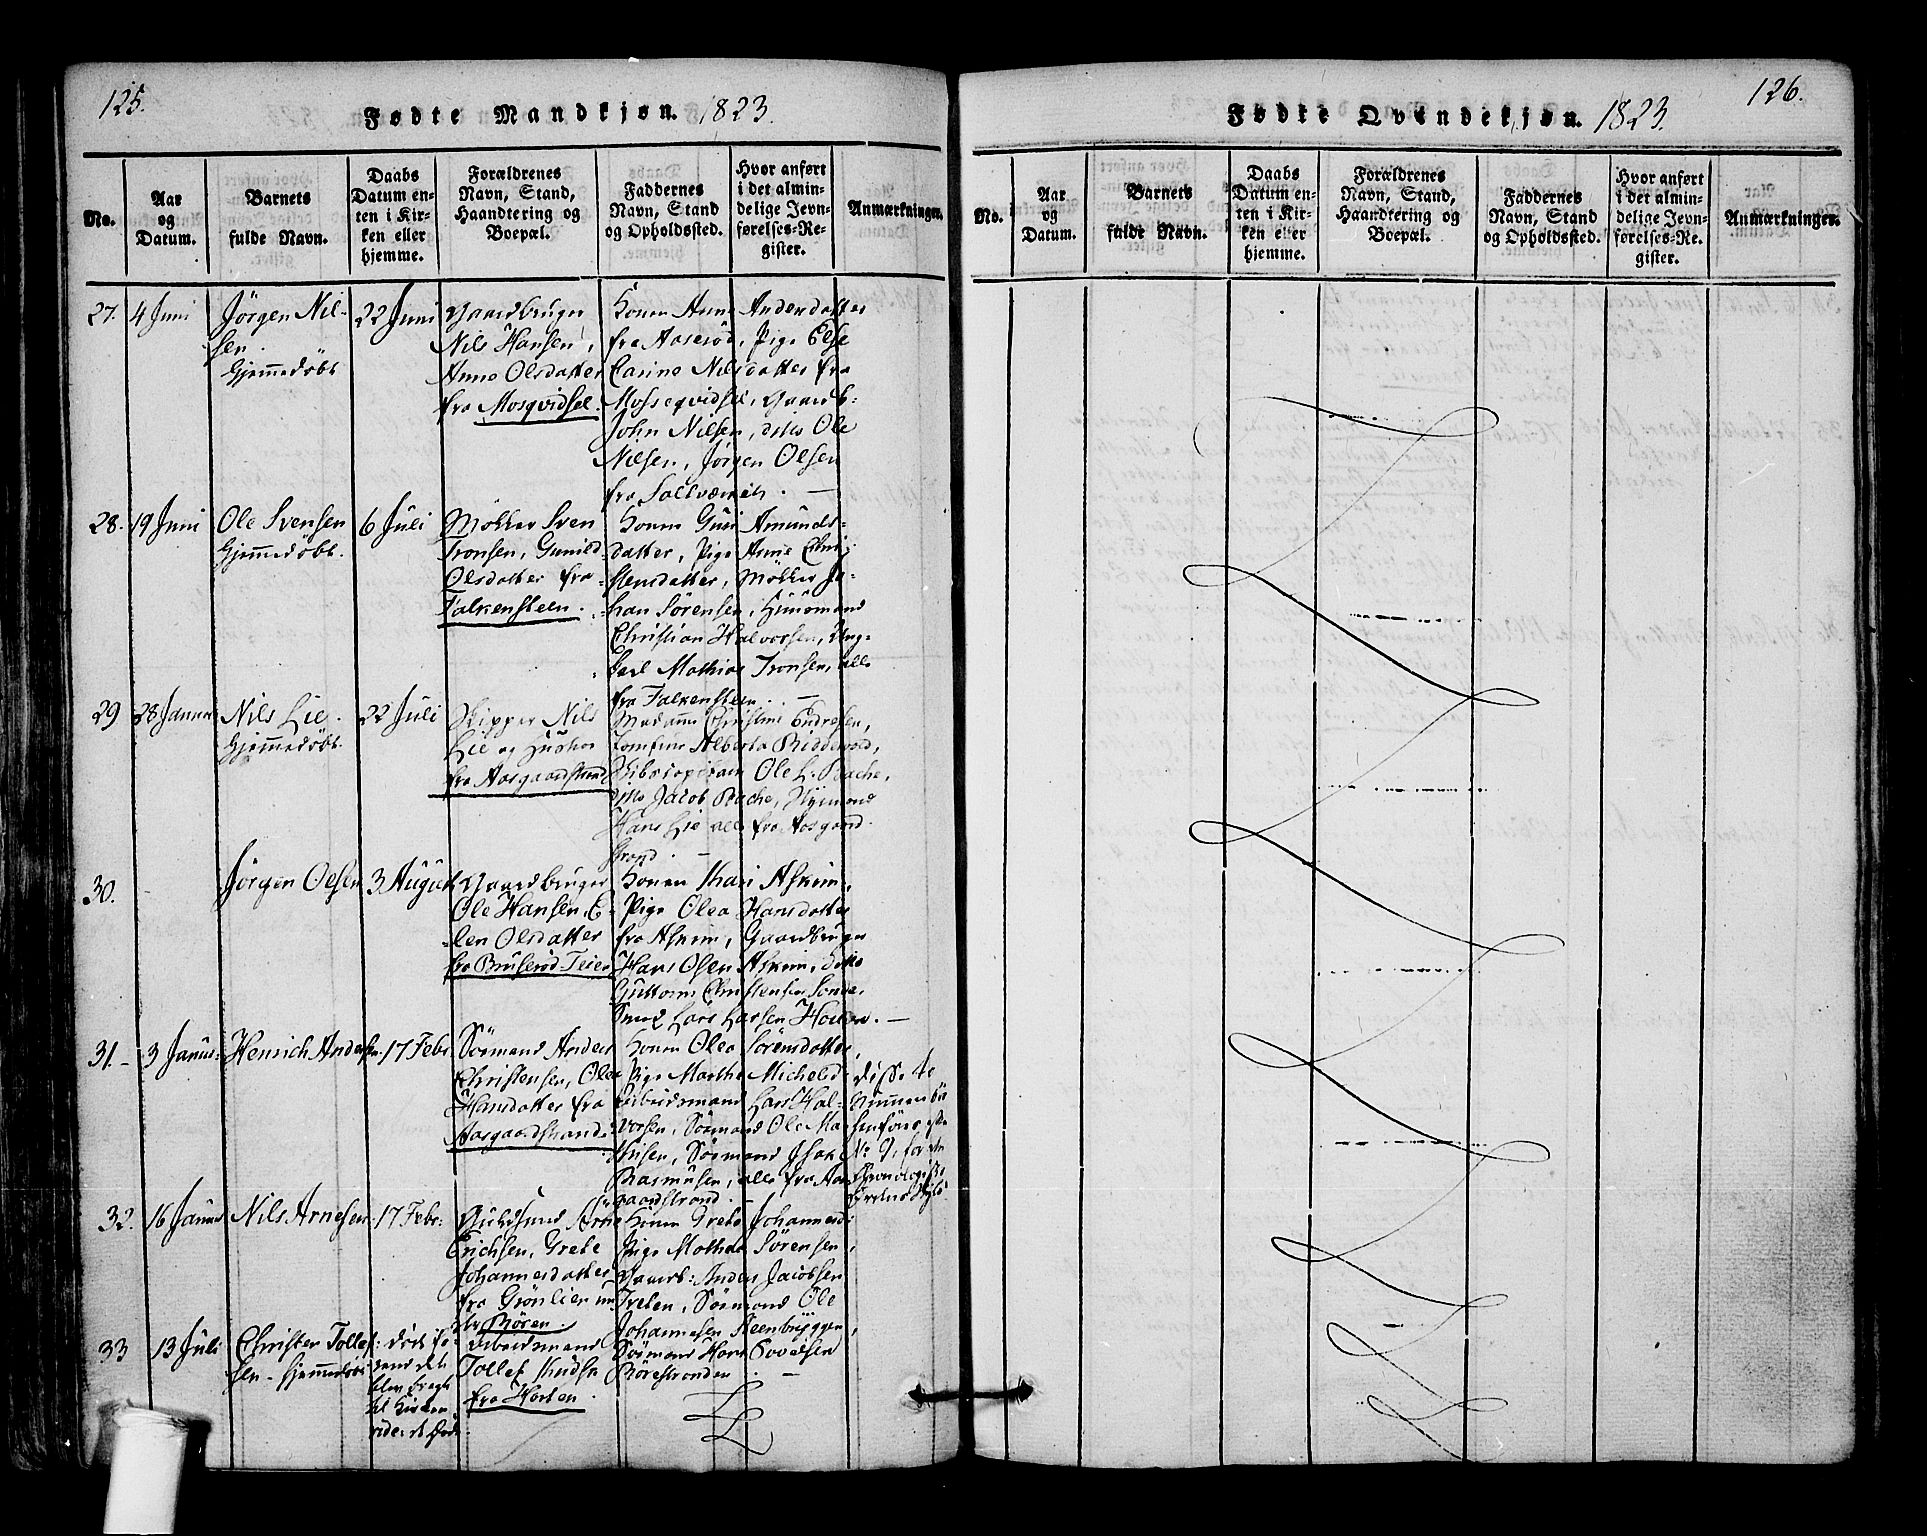 125.
Fødte Mandkjøn. 1823.
No.
Aar
og
Datum.
Barnets
fulde Navn.
Daabs
Datum en-
ten i Kir-
ken eller
hjemme.
Forældrenes
Navn, Stand,
Haandtering og
Boepæl.
Faddernes
Navn, Stand
og Opholdssted.
Hvor anført
i det almin-
delige Jevn-
førelses-Re-
gister.
Anmærkninger.
27. 4 Juni
Jörgen Nil-
sen.
Gjemmedöbt
22 Juni
Gaardbruger
Nils Hansen,
Anne Olsdatter
fra Mosqvidsel.
Konen Anne Andersdatter
fra Aaseröd, Pige Else
Carine Nilsdatter fra
Mosseqvidsel, Gaardb.
John Nilsen, ditto Ole
Nilsen, Jörgen Olsen
fra
28. 19 Juni
Ole Svensen
Gjemmedöbt.
6 Juli
Möller Sven
Tronsen, Gunild
Olsdatter fra
Falkensteen.
Konen Guri Amunds-
datter, Pige Anne Chri-
stensdatter, Möller Jo-
han Sörensen, Huusmand
Christian Halvorsen, Ung-
karl Mathias Tronsen, alle
fra Falkensteen.
29 28 Januar
Nils Lie.
Gjemmedöbt.
22 Juli
Skipper Nils
Lie og Hustro
fra Aasgaardstrand
Madame Christine Endresen,
Jomfrue Alberta Riddervold,
Ole L. Bache,
ditto Jacob Bache, Styrmand
Hans Lie alle fra Aasgaard-
strand.
30.
Jörgen Olsen
3 August
Gaardbruger
Ole Hansen, E-
len Olsdatter
fra Bruseröd-Teien
Konen Kari Askim,
Pige Olea Hansdatter
fra Askim, Gaardbruger
Hans Olsen Askim, ditto
Guttorm Christensen
Lars Larsen
31. 3 Januar
Henrich Andersen
17 Febr.
Sömand Anders
Christensen, Olea
Hansdatter fra
Aasgaardstrand
Konen Olea Sörensdatter,
Pige Marthe Michelsd.
Arbeidsmand Lars Hal-
vorsen, Sömand Ole Mar-
thisen, Sömand Isak
Rasmusen, alle fra Aas-
gaardstrand.
Disse to
No 9, for den
Chronologiske
Ordens Skyld
32. 16 Januar
Nils Arnesen
17 Febr.
Arne
Erichsen, Grete
Johannesdatter
fra Grönlien un-
der Rören.
Konen Grete Johannesd.
Pige Mathea Sörensen,
Gaardb: Anders Jacobsen
Sömand Ole
Johannesen Steenbryggen,
Sömand Hans Povelsen
Rörestranden
33 13 Juli
Christen Tollef-
sen - Hjemmedöbt
död
Arbeidsmand
Tollef Knudsen
fra Horten.
126.
Fødte Qvindekjøn. 1823.
No.
Aar
og
Datum.
Barnets
fulde Navn.
Daabs
Datum en-
ten i Kir-
ken eller
hjemme.
Forældrenes
Navn, Stand,
Haandtering og
Boepæl.
Faddernes
Navn, Stand
og Opholdssted.
Hvor anført
i det almin-
delige Jevn-
førelses-Re-
gister.
Anmærkninger.